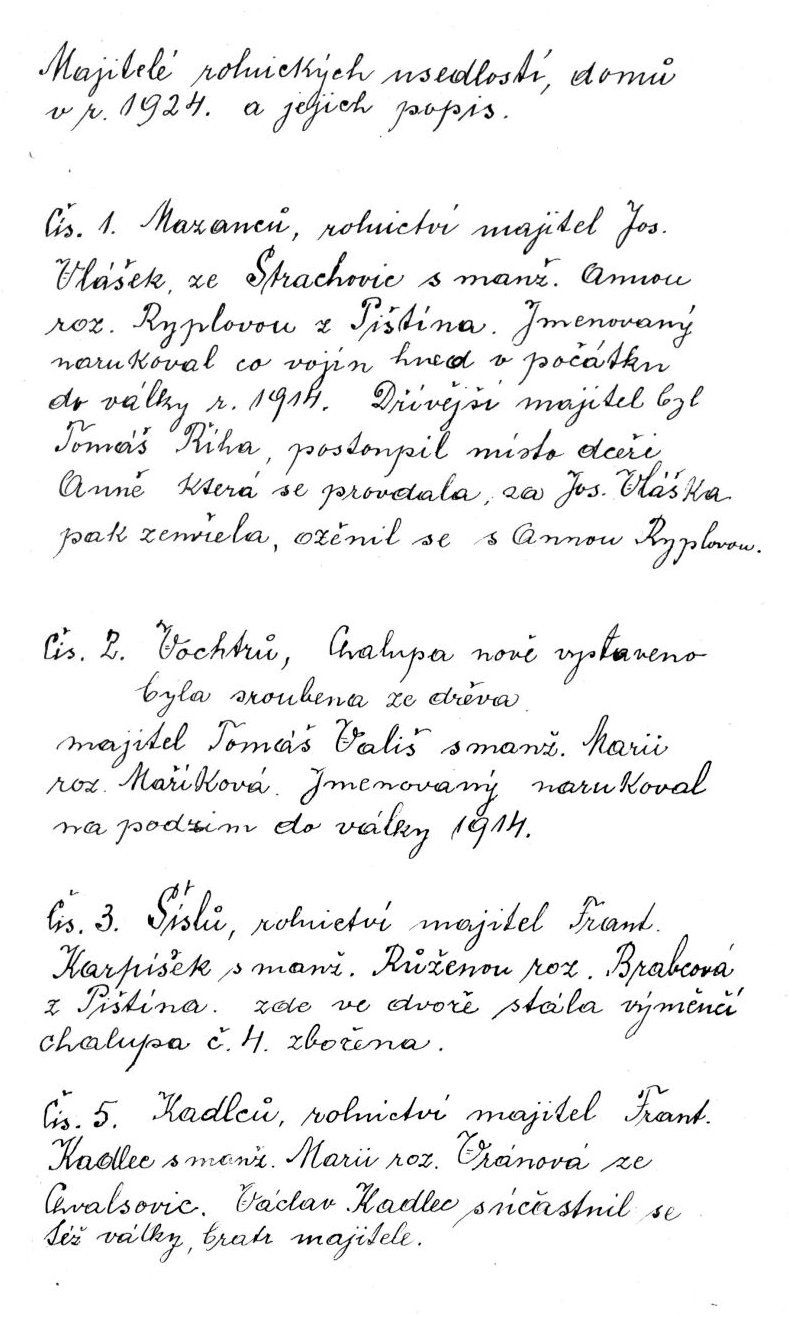 Majitelé rolnických usedlostí, domů
v r. 1924. a jejich popis.
Čís. 1. Mazanců, rolnictví majitel Jos.
Vlášek, ze Strachovic s manž. Annou
roz. Ryplovou z Pištína. Jmenovaný
narukoval co vojín hned v počátku
do války r. 1914. Dřívější majitel byl
Tomáš Říha, postoupil místo dceři
Anně která se provdala, za Jos. Vláška
pak zemřela, oženil se s Annou Ryplovou.
Čís. 2. Vochtrů, Chalupa nově vystaveno
byla sroubena ze dřeva
majitel Tomáš Vališ s manž. Marii
roz. Maříková. Jmenovaný narukoval
na podzim do války 1914.
Čís. 3. Šíslů, rolnictví majitel Frant.
Karpíšek s manž. Růženou roz. Brabcová
z Pištína. zde ve dvoře stála výměnčí
chalupa č. 4. zbořena.
Čís. 5. Kadlců, rolnictví majitel Frant.
Kadlec s manž. Marii roz. Vránová ze
Chvalšovic. Václav Kadlec súčastnil se
též války, bratr majitele.